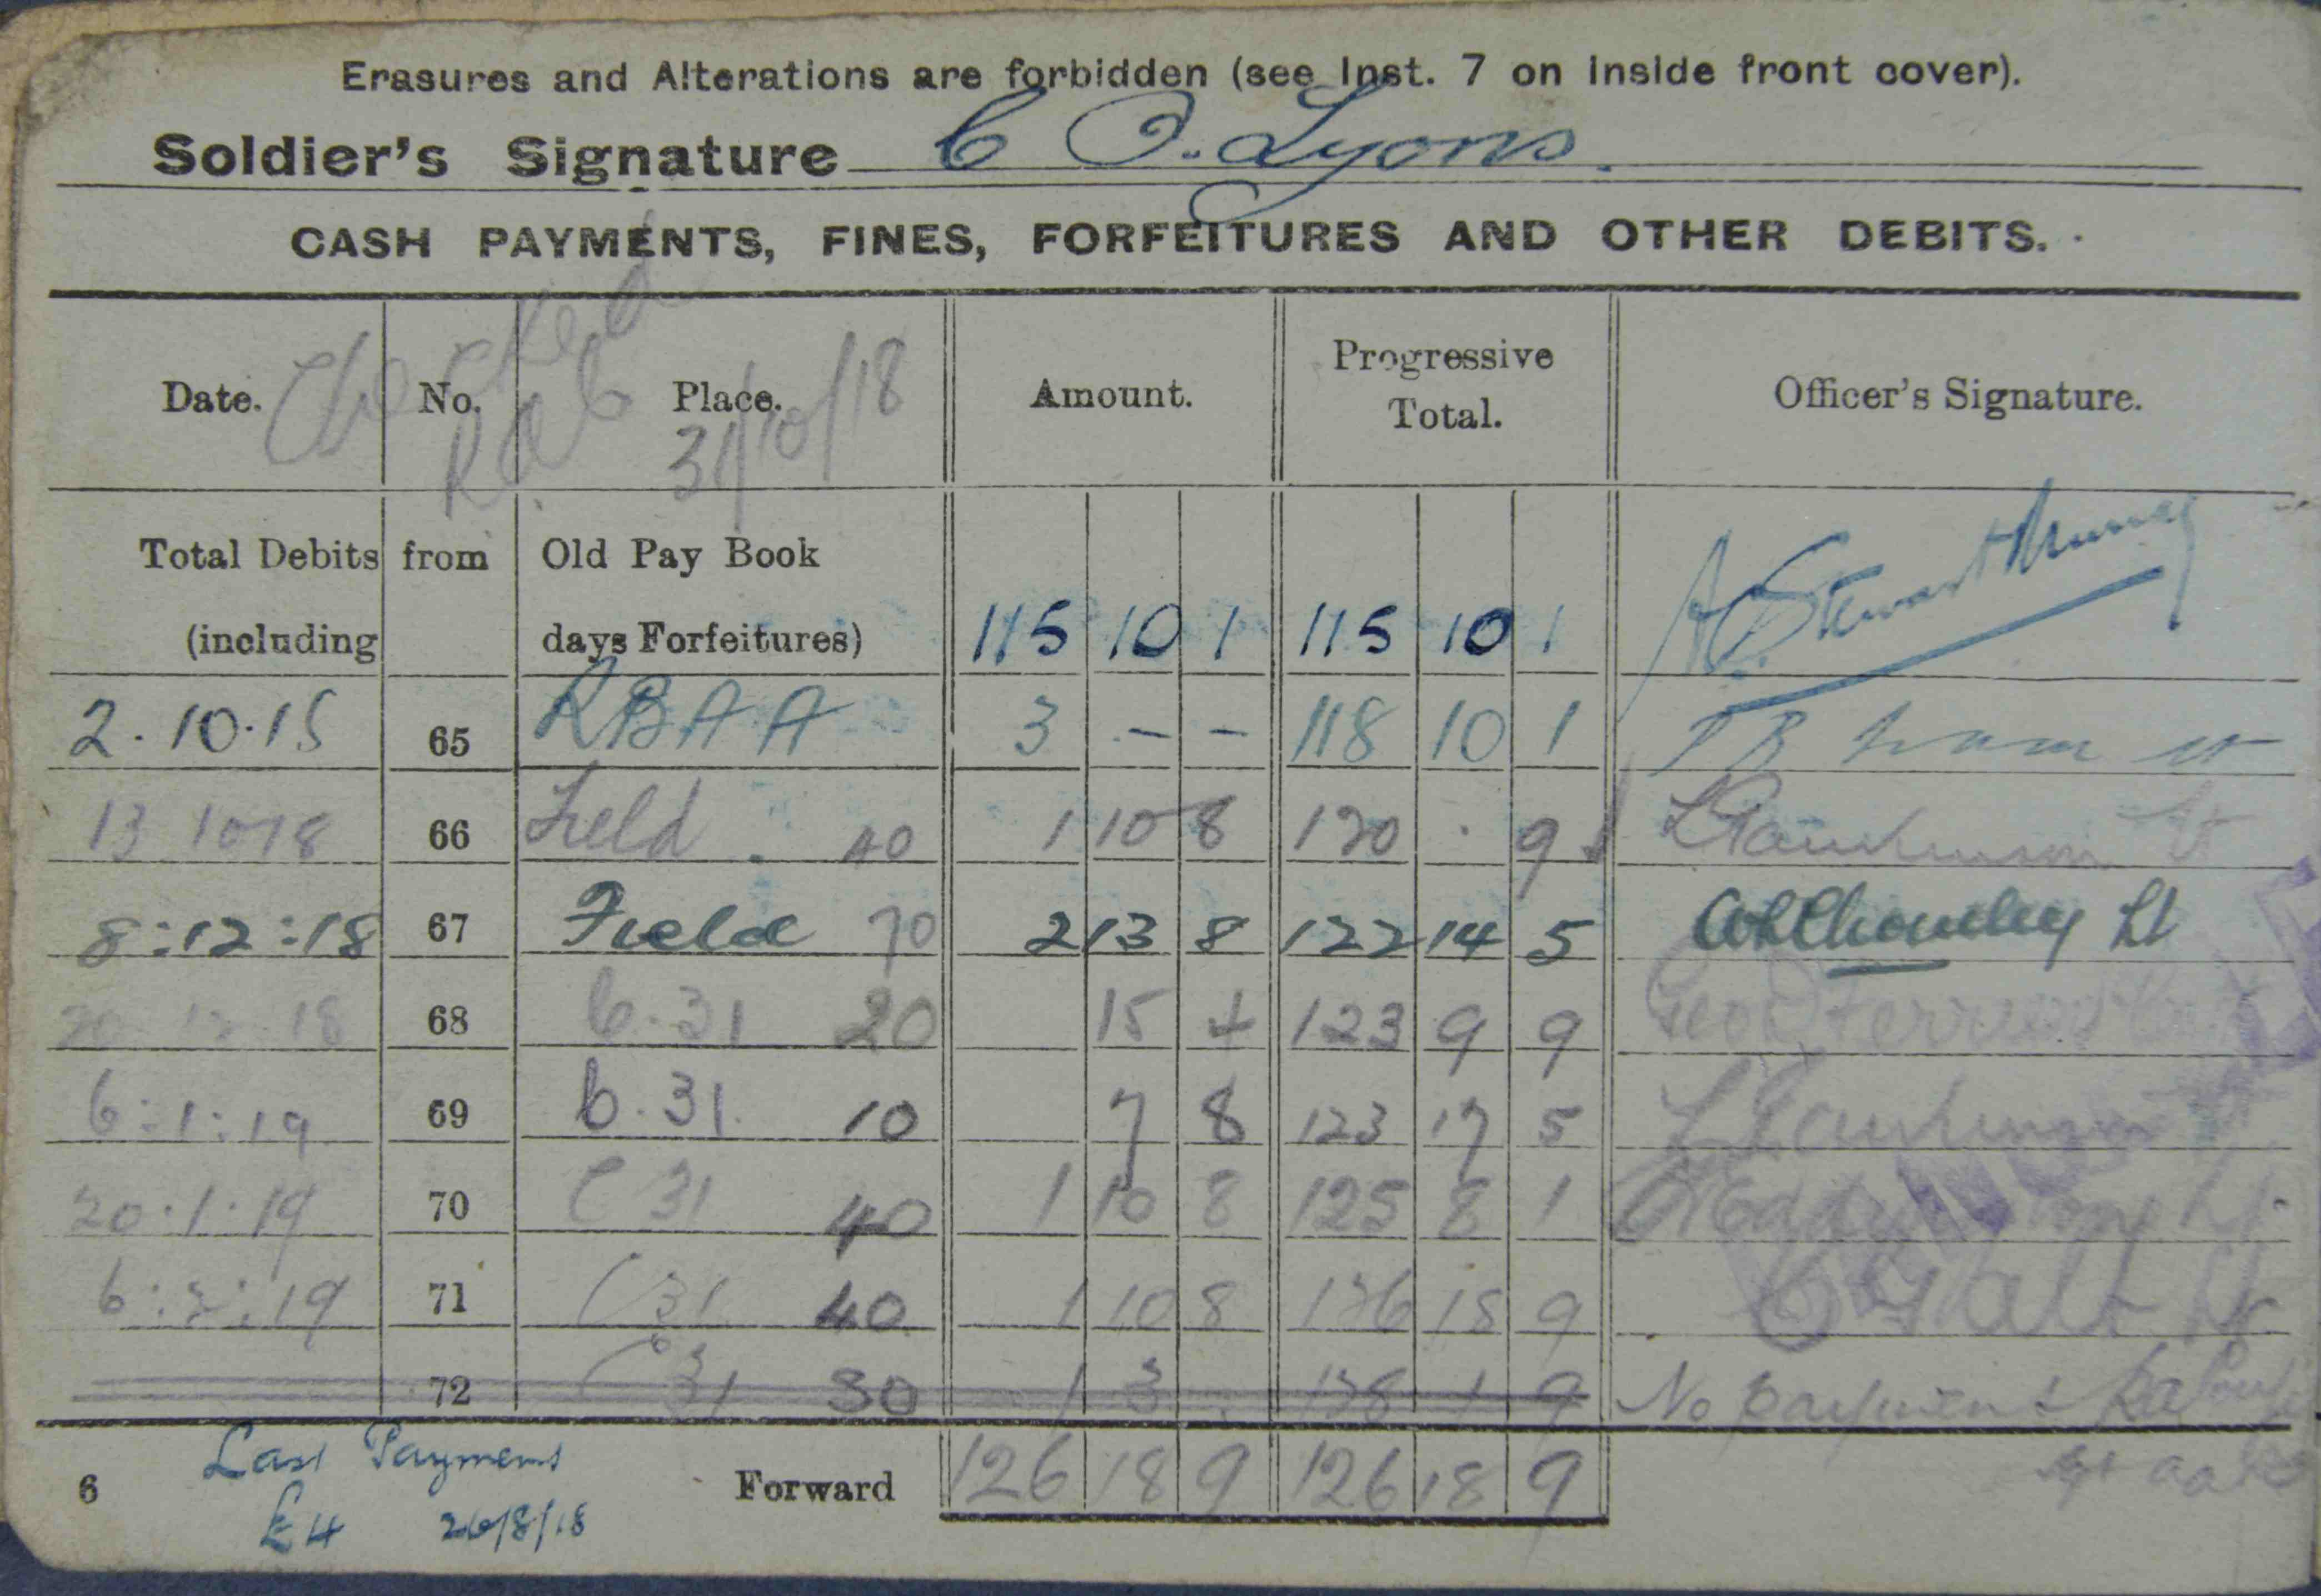 Erasures and Alterations are forbidden (see Inst. 7 on inside front cover).
Soldier's Signature C O. Lyons.
CASH PAYMENTS, FINES, FORFEITURES AND OTHER DEBITS.
Checked
31/10/18
Date. No. Place. Amount. Progressive Total. Officer's Signature.
Total Debits from Old Pay Book
(including days Forfeitures) 115 10 1 115 10 1 A. Stewart Murray
2.10.18 65 RBAA 3 - - 118 10 1
13 10 18 66 Field 40 1 10 8 120 . 9 Lt
8:12:18 67 Field 70 2 13 8 122 14 5 Lt
20 12 18 68 C.31 20 15 4 123 9 9
6:1:19 69 C.31. 10 7 8 123 17 5
20.1.19 70 C 31 40 1 10 8 125 8 1 Lt.
6:2:19 71 C31 40 1 10 8 126 18 9 Lt
72 C31 30 1 3 . 128 1 9 No payment
Last Payment
6 Forward 126 18 9 126 18 9
£4 26/8/18